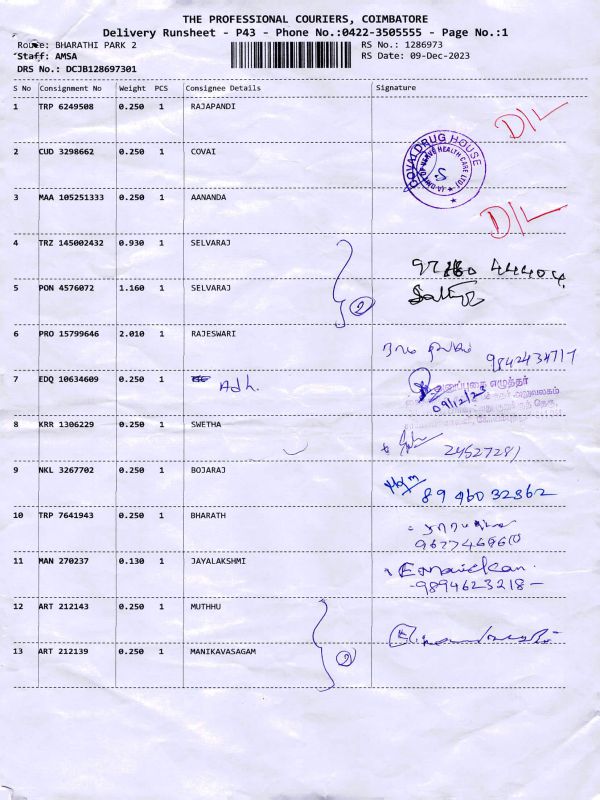 THE PROFESSIONAL COURIERS, COIMBATORE
Delivery Runsheet - P43 - Phone No.:0422-3505555 - Page No.:1
Route: BHARATHI PARK 2 RS No.: 1286973
Staff: AMSA RS Date: 09-Dec-2023
DRS No.: DCJB128697301
S No Consignment No Weight PCS Consignee Details Signature
1 TRP 6249508 0.250 1 RAJAPANDI D/L
2 CUD 3298662 0.250 1 COVAI
COVAI DRUG HOUSE
3 MAA 105251333 0.250 1 AANANDA D/L
4 TRZ 145002432 0.930 1 SELVARAJ
5 PON 4576072 1.160 1 SELVARAJ 2
6 PRO 15799646 2.010 1 RAJESWARI
9842434717
7 EDQ 10634609 0.250 1 Adh.
09/12/23
8 KRR 1306229 0.250 1 SWETHA
24527281
9 NKL 3267702 0.250 1 BOJARAJ
89460 32362
10 TRP 7641943 0.250 1 BHARATH
11 MAN 270237 0.130 1 JAYALAKSHMI
-9894623218-
12 ART 212143 0.250 1 MUTHHU
13 ART 212139 0.250 1 MANIKAVASAGAM 2